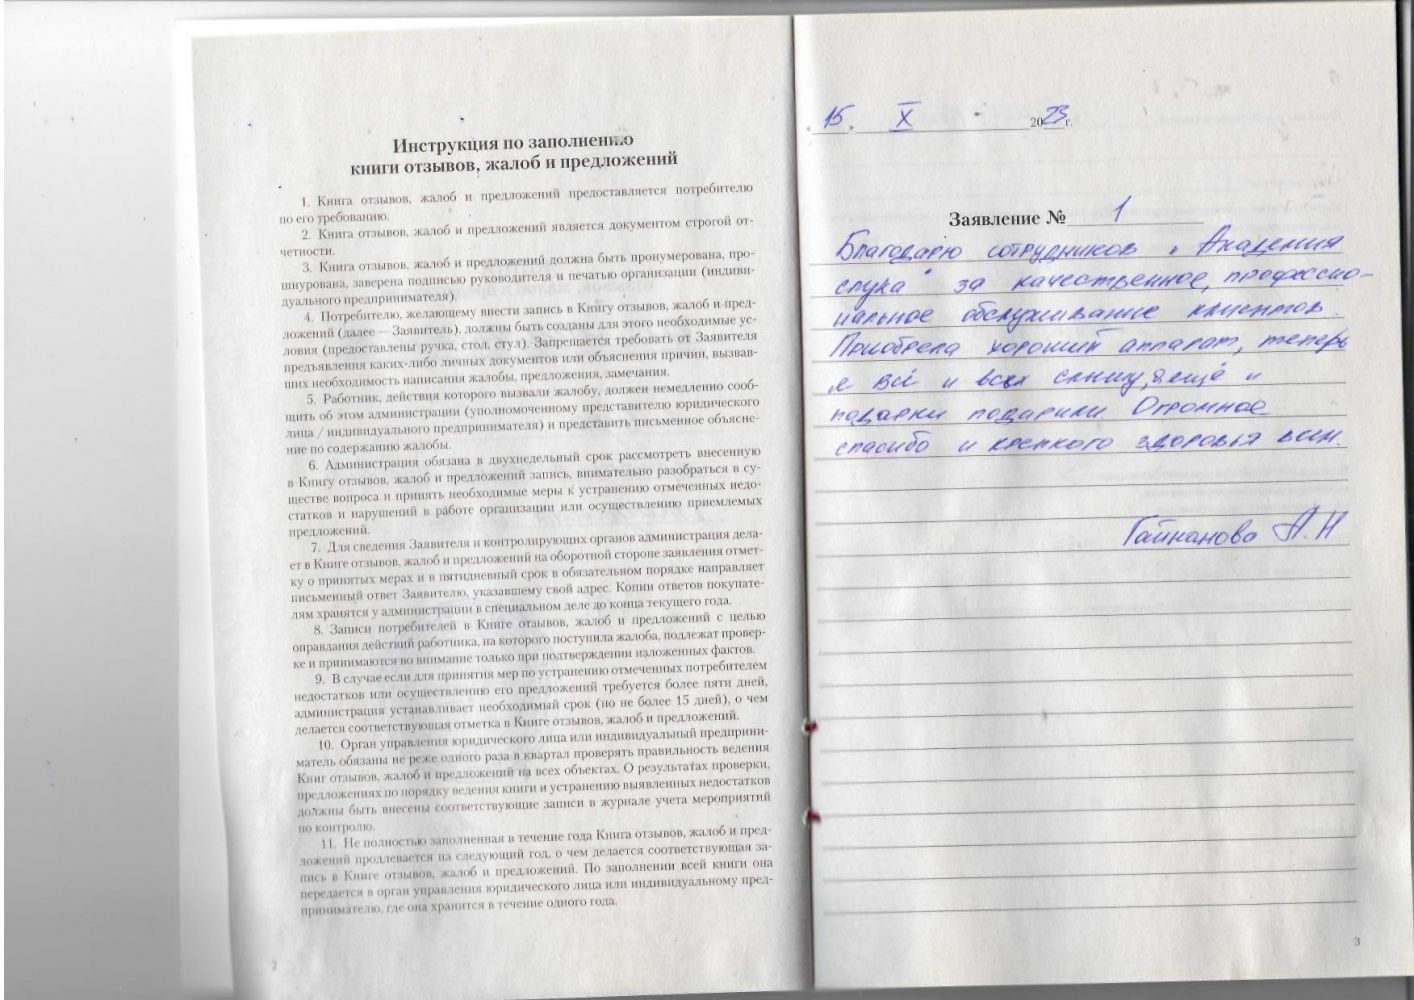 Инструкция по заполнению
книги отзывов, жалоб и предложений
1. Книга отзывов, жалоб и предложений предоставляется потребителю
по его требованию.
2. Книга отзывов, жалоб и предложений является документом строгой от-
четности.
3. Книга отзывов, жалоб и предложений должна быть пронумерована, про-
шнурована, заверена подписью руководителя и печатью организации (индиви-
дуального предпринимателя).
4. Потребителю, желающему внести запись в Книгу отзывов, жалоб и пред-
ложений (далее — Заявитель), должны быть созданы для этого необходимые ус-
ловия (предоставлены ручка, стол, стул). Запрещается требовать от Заявителя
предъявления каких-либо личных документов или объяснения причин, вызвав-
ших необходимость написания жалобы, предложения, замечания.
5. Работник, действия которого вызвали жалобу, должен немедленно сооб-
щить об этом администрации (уполномоченному представителю юридического
лица / индивидуального предпринимателя) и представить письменное объясне-
ние по содержанию жалобы.
6. Администрация обязана в двухнедельный срок рассмотреть внесенную
в Книгу отзывов, жалоб и предложений запись, внимательно разобраться в су-
ществе вопроса и принять необходимые меры к устранению отмеченных недо-
статков и нарушений в работе организации или осуществлению приемлемых
предложений.
7. Для сведения Заявителя и контролирующих органов администрация дела-
ет в Книге отзывов, жалоб и предложений на оборотной стороне заявления отмет-
ку о принятых мерах и в пятидневный срок в обязательном порядке направляет
письменный ответ Заявителю, указавшему свой адрес. Копии ответов покупате-
лям хранятся у администрации в специальном деле до конца текущего года.
8. Записи потребителей в Книге отзывов, жалоб и предложений с целью
оправдания действий работника, на которого поступила жалоба, подлежат провер-
ке и принимаются во внимание только при подтверждении изложенных фактов.
9. В случае если для принятия мер по устранению отмеченных потребителем
недостатков или осуществлению его предложений требуется более пяти дней,
администрация устанавливает необходимый срок (но не более 15 дней), о чем
делается соответствующая отметка в Книге отзывов, жалоб и предложений.
10. Орган управления юридического лица или индивидуальный предприни-
матель обязаны не реже одного раза в квартал проверять правильность ведения
Книг отзывов, жалоб и предложений на всех объектах. О результатах проверки,
предложениях по порядку ведения книги и устранению выявленных недостатков
должны быть внесены соответствующие записи в журнале учета мероприятий
по контролю.
11. Не полностью заполненная в течение года Книга отзывов, жалоб и пред-
ложений продлевается на следующий год, о чем делается соответствующая за-
пись в Книге отзывов, жалоб и предложений. По заполнении всей книги она
передается в орган управления юридического лица или индивидуальному пред-
принимателю, где она хранится в течение одного года.
2
«15» X 2023 г.
Заявление № 1
Благодарю сотрудников "Академия
слуха" за качественное, профессио-
нальное обслуживание клиентов.
Приобрела хороший аппарат, теперь
я всё и всех слышу, а ещё и
подарки подарили. Огромное
спасибо и крепкого здоровья всем
Гайнанова А.Н
3